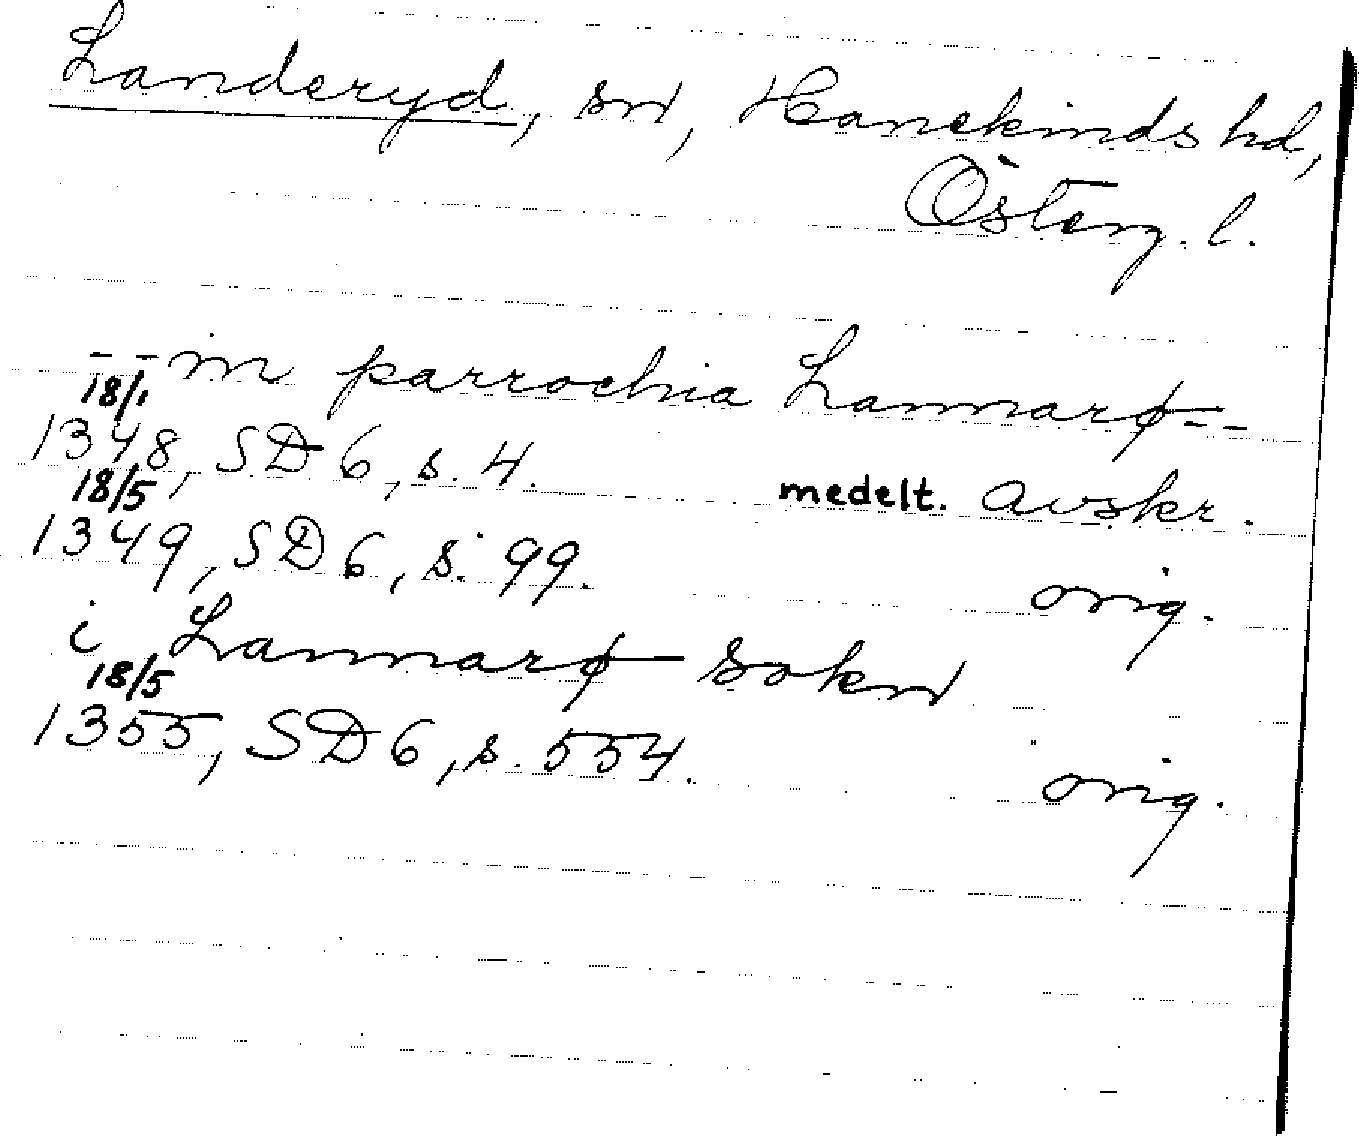 Landeryd, sn, Hanekinds hd,
Österg. l.
-- in parrochia Lannarø--
18/1
1348, SD 6, s. 4. medelt. avskr.
18/5
1349, SD 6, s. 99. orig.
i Lannarø sokn
18/5
1355, SD 6, s. 554. orig.